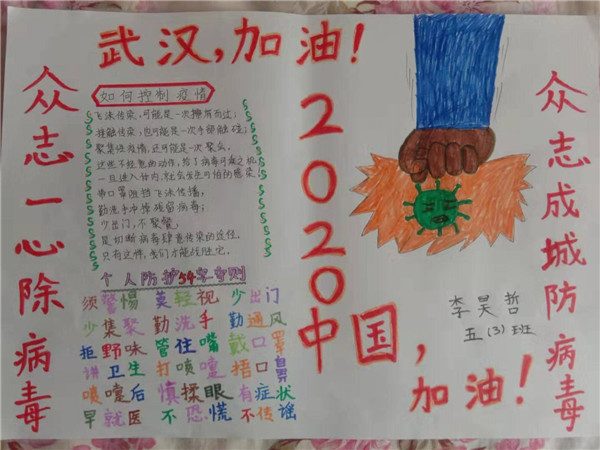 武汉,加油!
众志一心除病毒
如何控制疫情
飞沫传染,可能是一次擦肩而过;
接触传染,也可能是一次手部触碰;
聚集性疫情,还可能是一次聚会。
这些不经意的动作,给了病毒可乘之机
一旦进入体内,就会发生可怕的感染
带口罩阻挡飞沫传播,
勤洗手冲掉残留病毒;
少出门,不聚餐,
是切断病毒肆意传染的途径。
只有这样,我们才能战胜它。
个人防护54字守则
须警惕 莫轻视 少出门
少集聚 勤洗手 勤通风
拒野味 管住嘴 戴口罩
讲卫生 打喷嚏 捂口鼻
喷嚏后 慎揉眼 有症状
早就医 不恐慌 不传谣
2020
中国,
加油!
李昊哲
五(3)班
众志成城防病毒